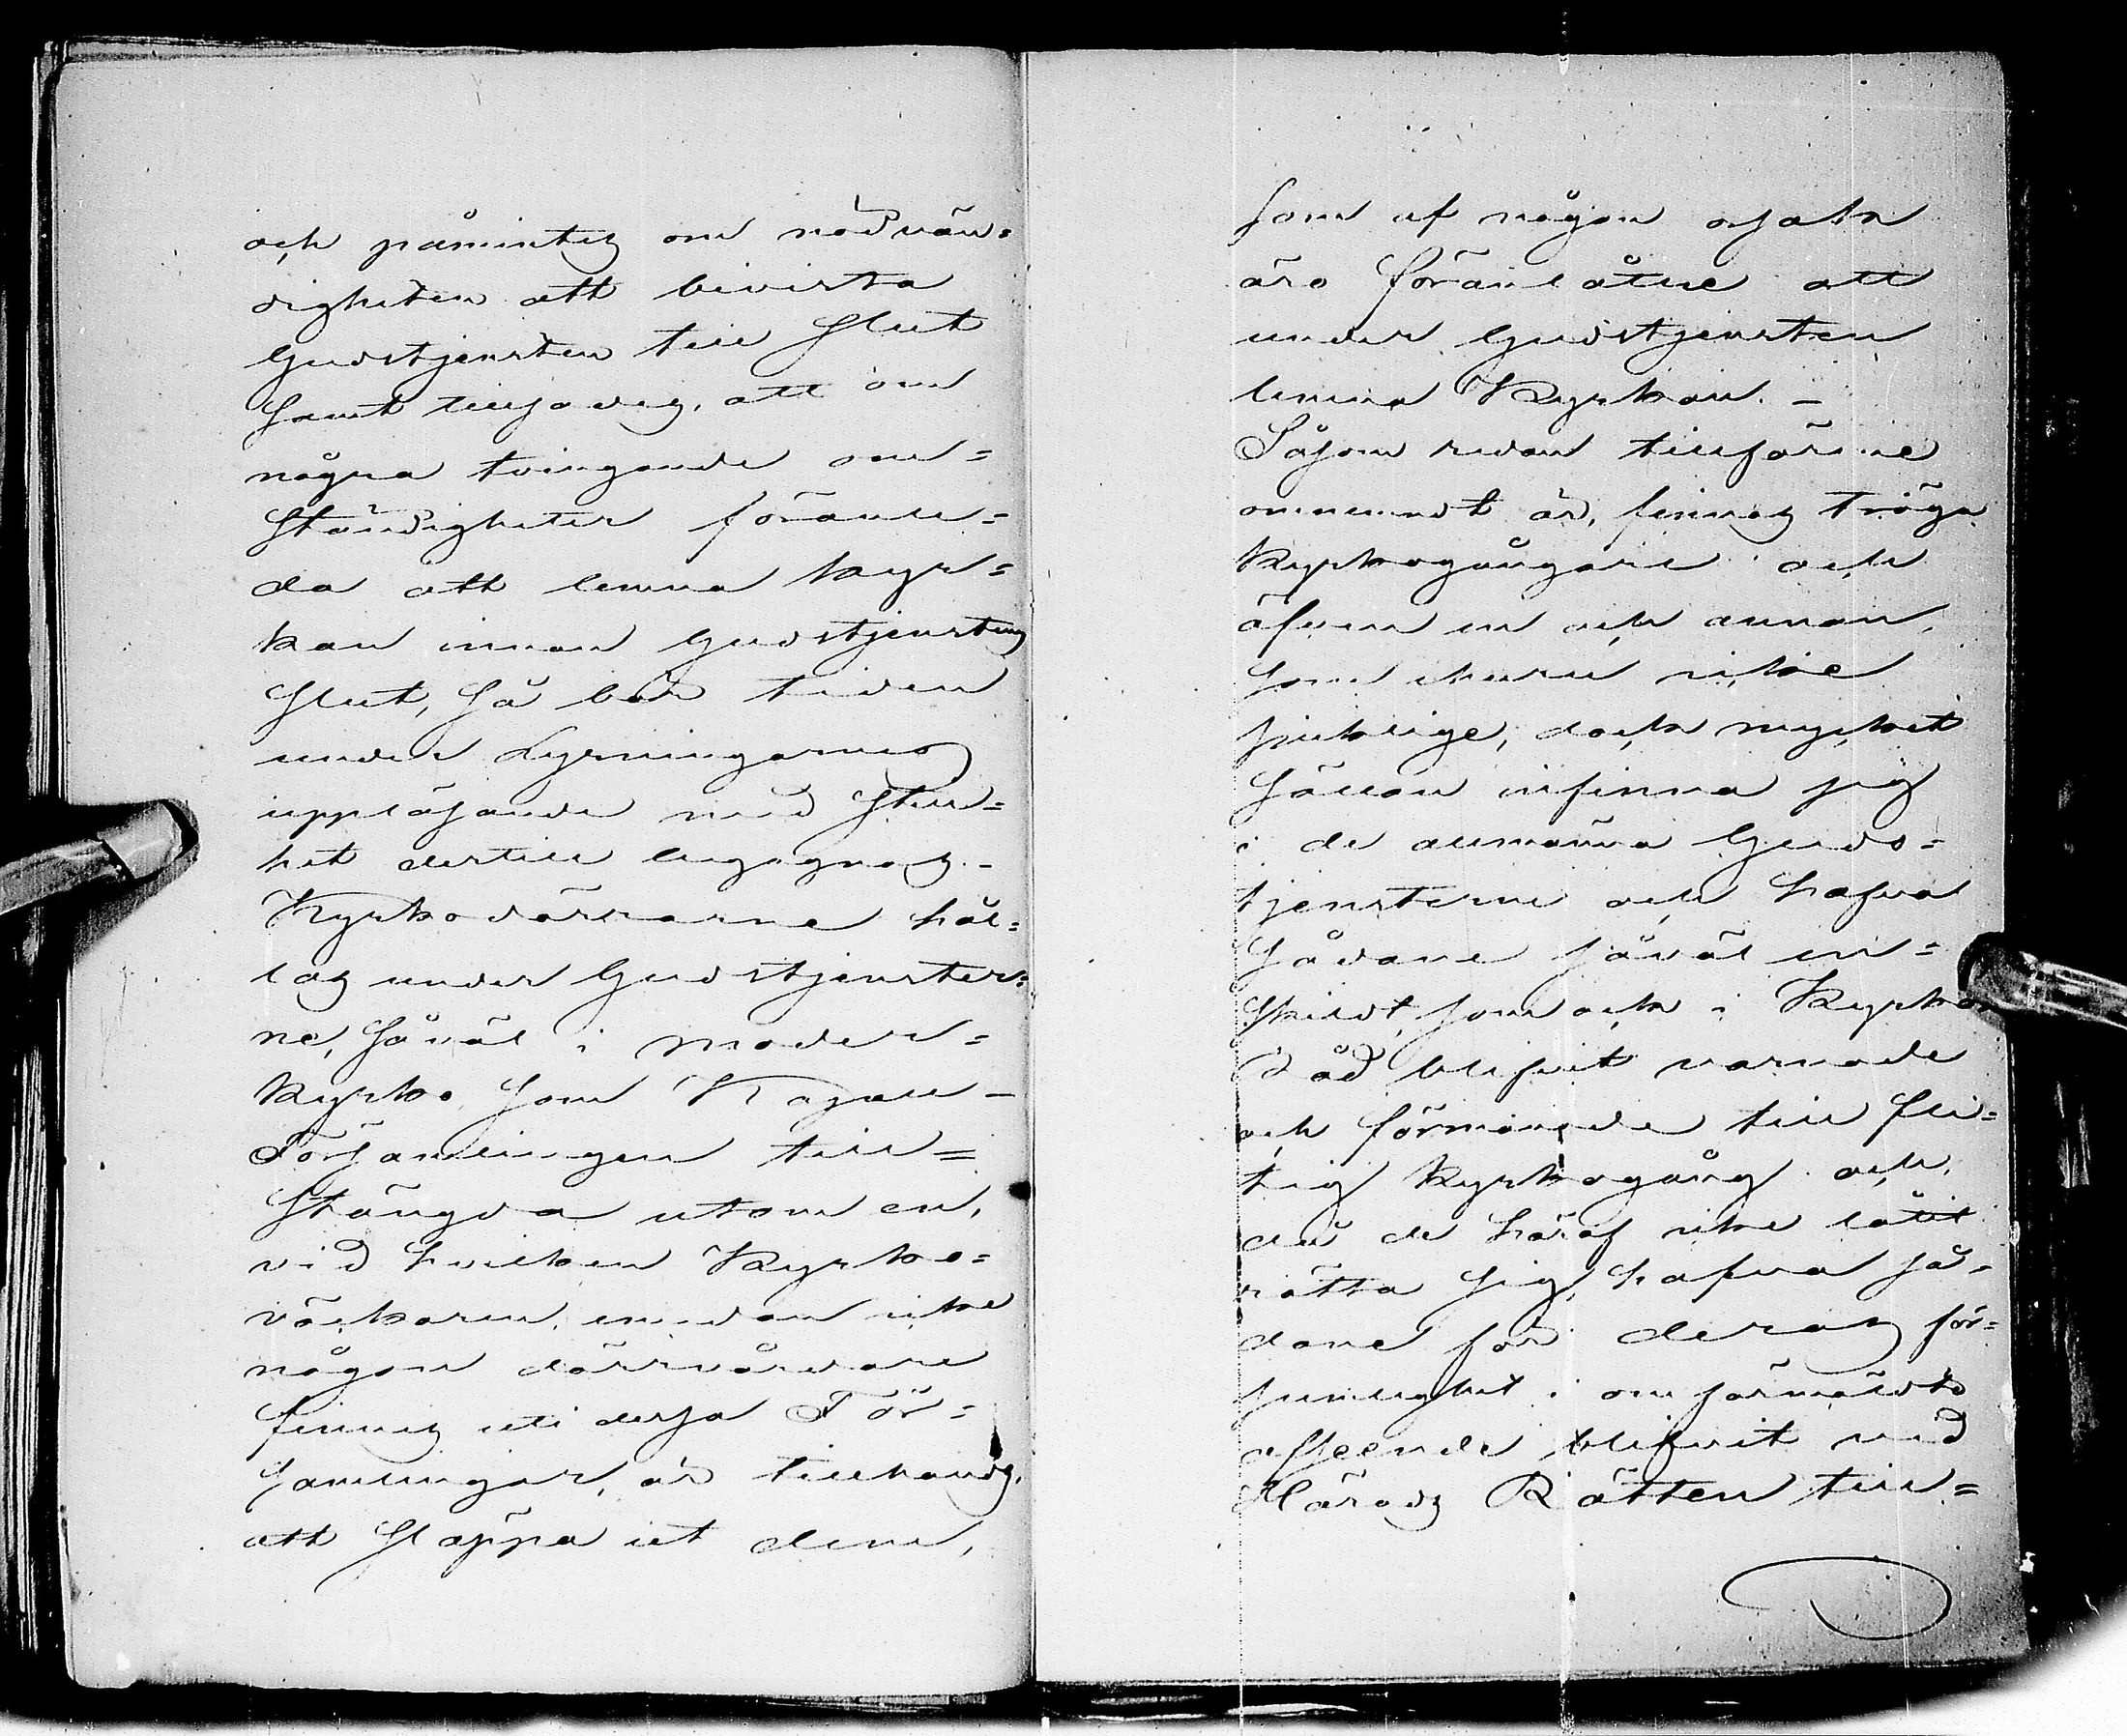 och påmintes om nödvän=
digheten att bevista
Gudstjensten till slut
samt tillsades, att om
några tvingande om=
ständigheter föranle=
da att lemna kyr=
kan innan Gudstjenstens
slut, så bör tiden
under Lysningarnes
uppläsande med still=
het dertill begagnas. –
Kyrkodörrarne hål=
las under Gudstjenster=
ne, såväl i moder=
kyrko som Kapell-
Församlingen till=
stängda utom en,
vid hvilken Kyrko=
väckaren, emedan icke
någon dörrvårdare
finnes uti dessa För=
samlingar, är tillhands
att släppa ut dem,
som af någon orsak
äro föranlåtne att
under Gudstjensten
lemna Kyrkan. –
Såsom redan tillförene
omnemndt är, finnas tröga
kyrkogångare och
äfven en och annan,
som ehuru icke
sjuklige, dock mycket
sällan infinna sig
i de allmänna Guds=
tjensterne och hafva
sådane såväl en=
skildt, som ock i Kyrko
Råd blifvit varnade
och förmanade till fli=
tig kyrkogång och,
då de häraf icke låtit
rätta sig, hafva så=
dane för deras för=
sumlighet i omförmäldte
afseende blifvit vid
Härads Rätten till=